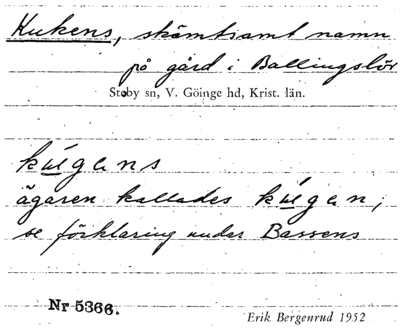 Kukens, skämtsamt namn
på gård i Ballingslöv
Stoby sn, V. Göinge hd, Krist. län.
kúgens
ägaren kallades kúgen,
se förklaring under Bassens
Nr 5366.
Erik Bergenrud 1952